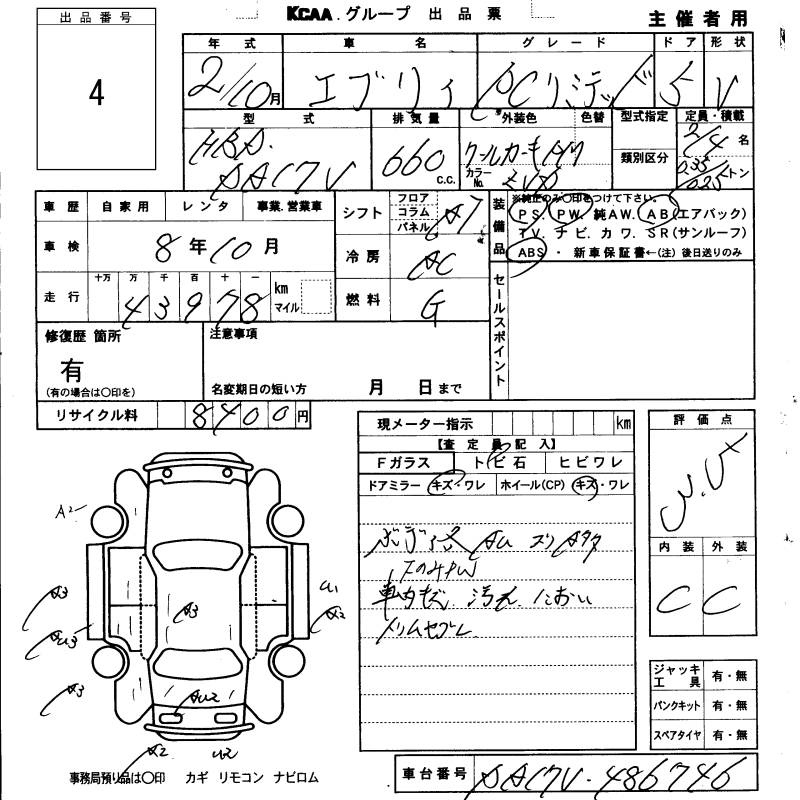 出品番号
4
KCAA.グループ 出品票
主催者用
年式 車名 グレード ドア 形状
2/10月 エブリィ PCリミテッド 5 V
型式 排気量 外装色 色替 型式指定 定員・積載
HBD- DA17V 660 C.C. クールカーキPM 2/4名
カラーNo. ZVD 類別区分 0.35/0.25トン
車歴 自家用 レンタ 事業.営業車
車検 8年10月
走行 十万 万 千 百 十 一
43978 km マイル
シフト フロア コラム パネル A7
冷房 AC
燃料 G
装備品 ※純正のみ〇印をつけて下さい。
PS. PW. 純AW. AB(エアバック)
TV. ナビ. カワ. SR(サンルーフ)
ABS ・ 新車保証書←(注) 後日送りのみ
セールスポイント
修復歴 箇所
有
(有の場合は〇印を)
注意事項
名変期日の短い方 月 日まで
リサイクル料 8400円
現メーター指示 km
【査定員記入】
Fガラス トビ石 ヒビワレ
ドアミラー キズ・ワレ ホイール(CP) キズ・ワレ
ボディ各 AU スリ
FのみPW
車内キズ 汚れ におい
評価点
内装 外装
C C
A2
A3
AU3
A3
A3
U1
A2
AU2
A2
U2
ジャッキ 工具 有・無
パンクキット 有・無
スペアタイヤ 有・無
事務局預り品は〇印 カギ リモコン ナビロム
車台番号 DA17V-486746